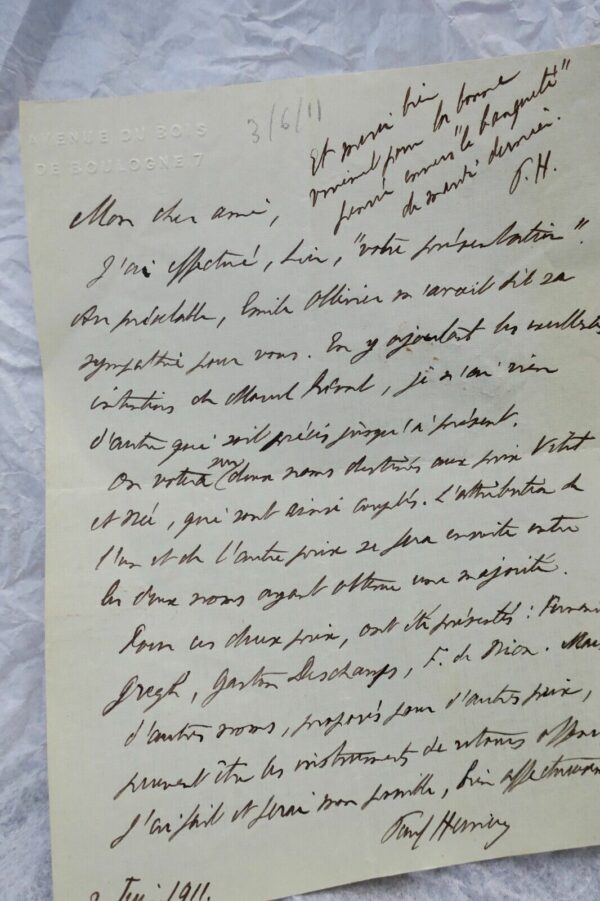 AVENUE DU BOIS
DE BOULOGNE 7
3/6/11
Et merci bien
vivement pour la bonne
pensée envers "le banqueté"
de mardi dernier.
P. H.
Mon cher ami,
J'ai effectué, hier, "votre présentation".
Au préalable, Emile Ollivier m'avait dit sa
sympathie pour vous. En y ajoutant les excellentes
intentions de Marcel Prévost, je n'ai rien
d'autre qui soit précis jusqu'à présent.
On votera sur deux noms destinés aux prix Vitet
et Née, qui sont ainsi couplés. L'attribution de
l'un et de l'autre prix se fera ensuite entre
les deux noms ayant obtenu une majorité.
Pour ces deux prix, ont été présentés :
Gregh, Gaston Deschamps, F. de Nion. Mais
d'autres noms, proposés pour d'autres prix,
peuvent être les instruments de retours
J'ai fait et ferai mon possible, bien
Paul Hervieu
Juin 1911.